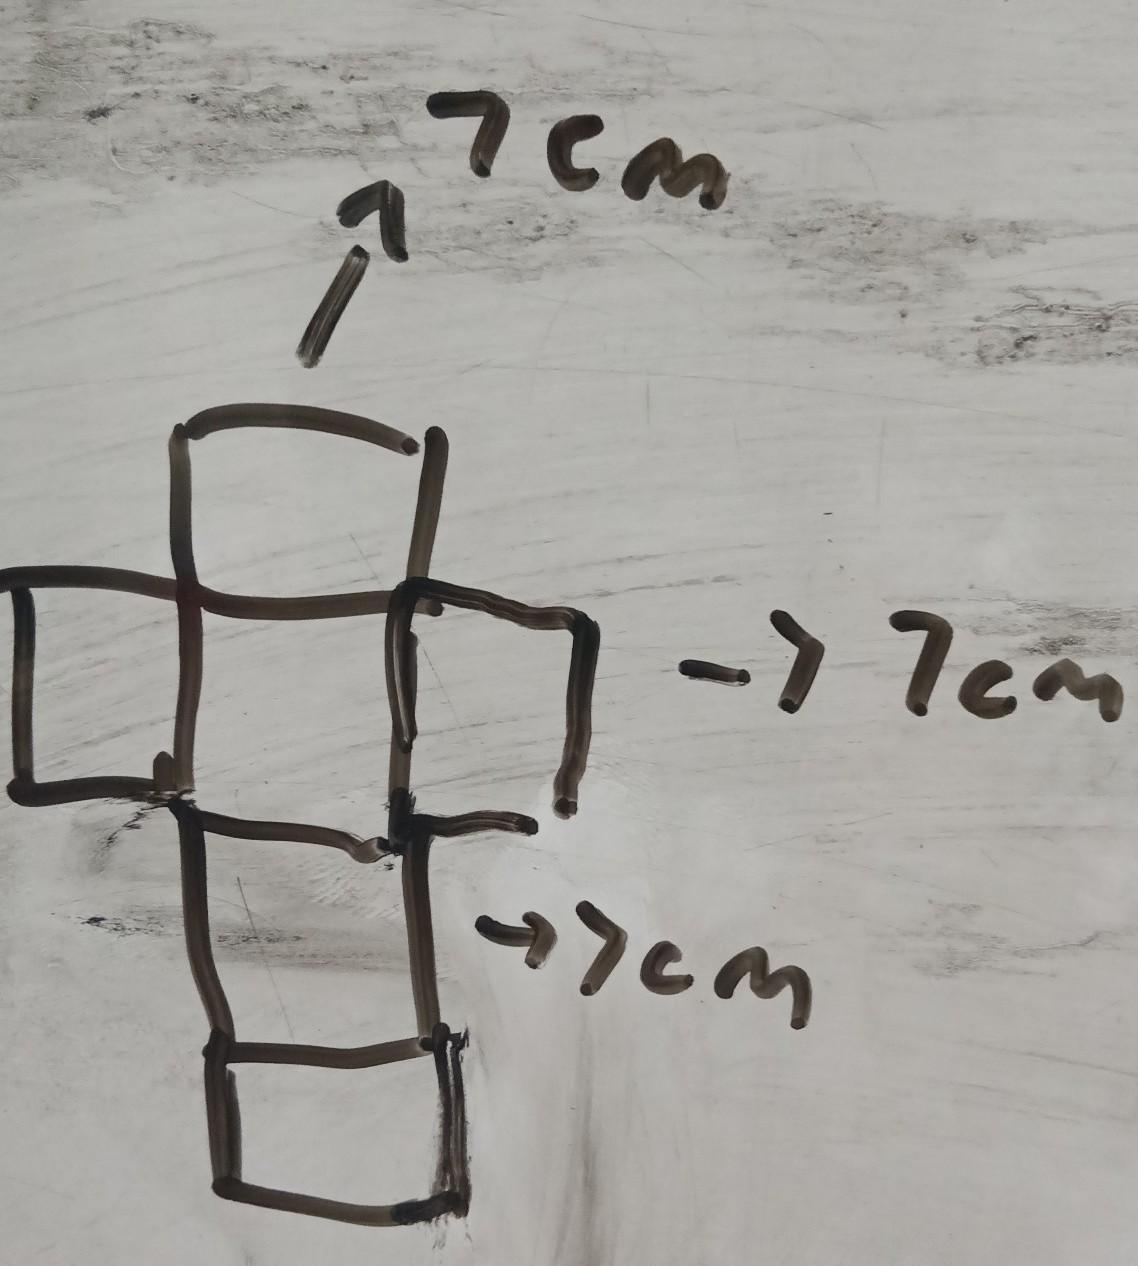 7cm
→ 7cm
→ 7cm